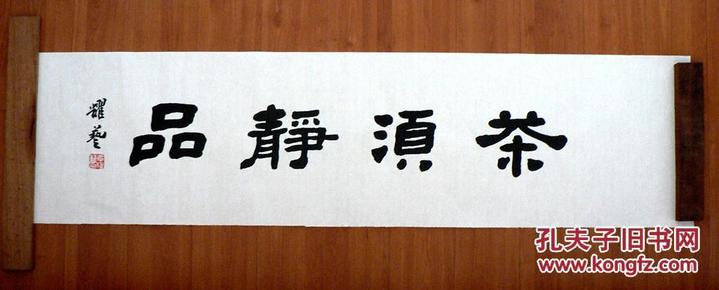 茶湏靜品
耀藝
孔夫子旧书网
www.kongfz.com